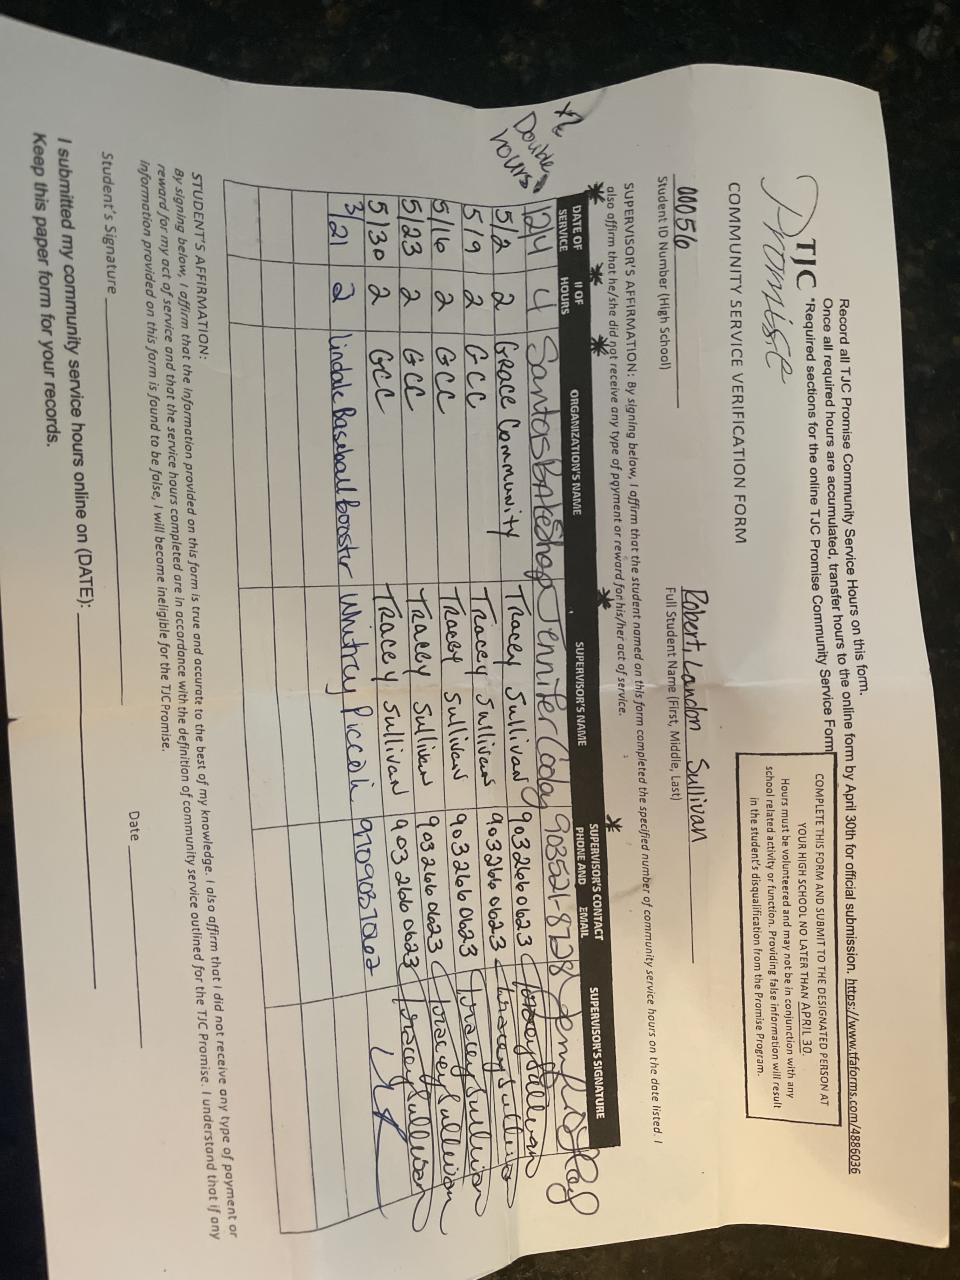 Record all TJC Promise Community Service Hours on this form.
Once all required hours are accumulated, transfer hours to the online form by April 30th for official submission. https://www.tfaforms.com/4886036
*Required sections for the online TJC Promise Community Service Form
TJC
Promise
COMPLETE THIS FORM AND SUBMIT TO THE DESIGNATED PERSON AT
YOUR HIGH SCHOOL NO LATER THAN APRIL 30.
Hours must be volunteered and may not be in conjunction with any
school related activity or function. Providing false information will result
in the student's disqualification from the Promise Program.
COMMUNITY SERVICE VERIFICATION FORM
00056 Robert, Landon Sullivan
Student ID Number (High School) Full Student Name (First, Middle, Last)
SUPERVISOR'S AFFIRMATION: By signing below, I affirm that the student named on this form completed the specified number of community service hours on the date listed. I
also affirm that he/she did not receive any type of payment or reward for his/her act of service.
DATE OF SERVICE # OF HOURS ORGANIZATION'S NAME SUPERVISOR'S NAME SUPERVISOR'S CONTACT PHONE AND EMAIL SUPERVISOR'S SIGNATURE
Double
hours
12/4 4 Jennifer 903521-8728
5/2 2 Grace Community Tracey Sullivan 903 266 0623 Tracey Sullivan
5/9 2 GCC Tracey Sullivan 903 266 0623 Tracey Sullivan
5/16 2 GCC Tracey Sullivan 903 266 0623 Tracey Sullivan
5/23 2 GCC Tracey Sullivan 903 266 0623 Tracey Sullivan
5/30 2 GCC Tracey Sullivan 903 266 0623 Tracey Sullivan
3/21 2 Lindale Baseball booster Whitney Piccoli
STUDENT'S AFFIRMATION:
By signing below, I affirm that the information provided on this form is true and accurate to the best of my knowledge. I also affirm that I did not receive any type of payment or
reward for my act of service and that the service hours completed are in accordance with the definition of community service outlined for the TJC Promise. I understand that if any
information provided on this form is found to be false, I will become ineligible for the TJC Promise.
Student's Signature Date
I submitted my community service hours online on (DATE):
Keep this paper form for your records.